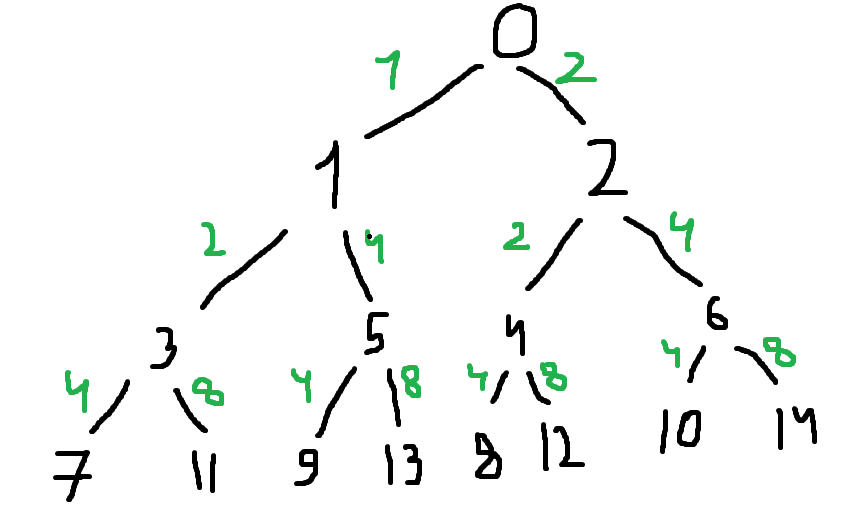 0
1 2
1 2
2 4 2 4
3 5 4 6
4 8 4 8 4 8 4 8
7 11 9 13 8 12 10 14